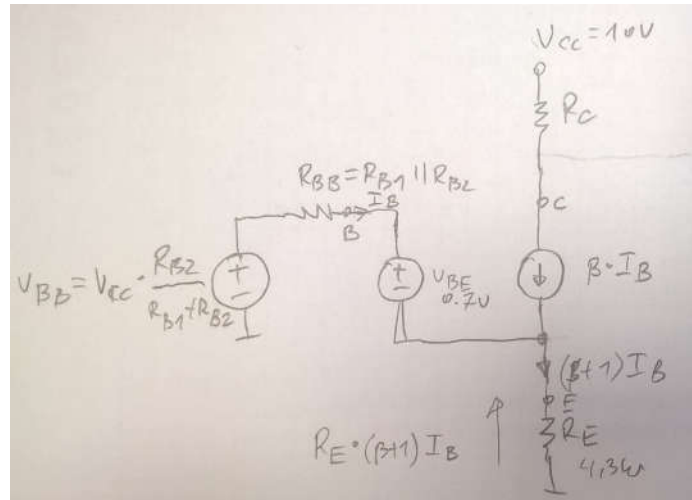 V_CC = 10V
R_C
R_BB = R_B1 || R_B2
I_B
B
C
V_BB = V_CC · R_B2 / R_B1 + R_B2
+
−
+
−
V_BE
0.7V
β · I_B
(β+1) I_B
E
R_E · (β+1) I_B
R_E